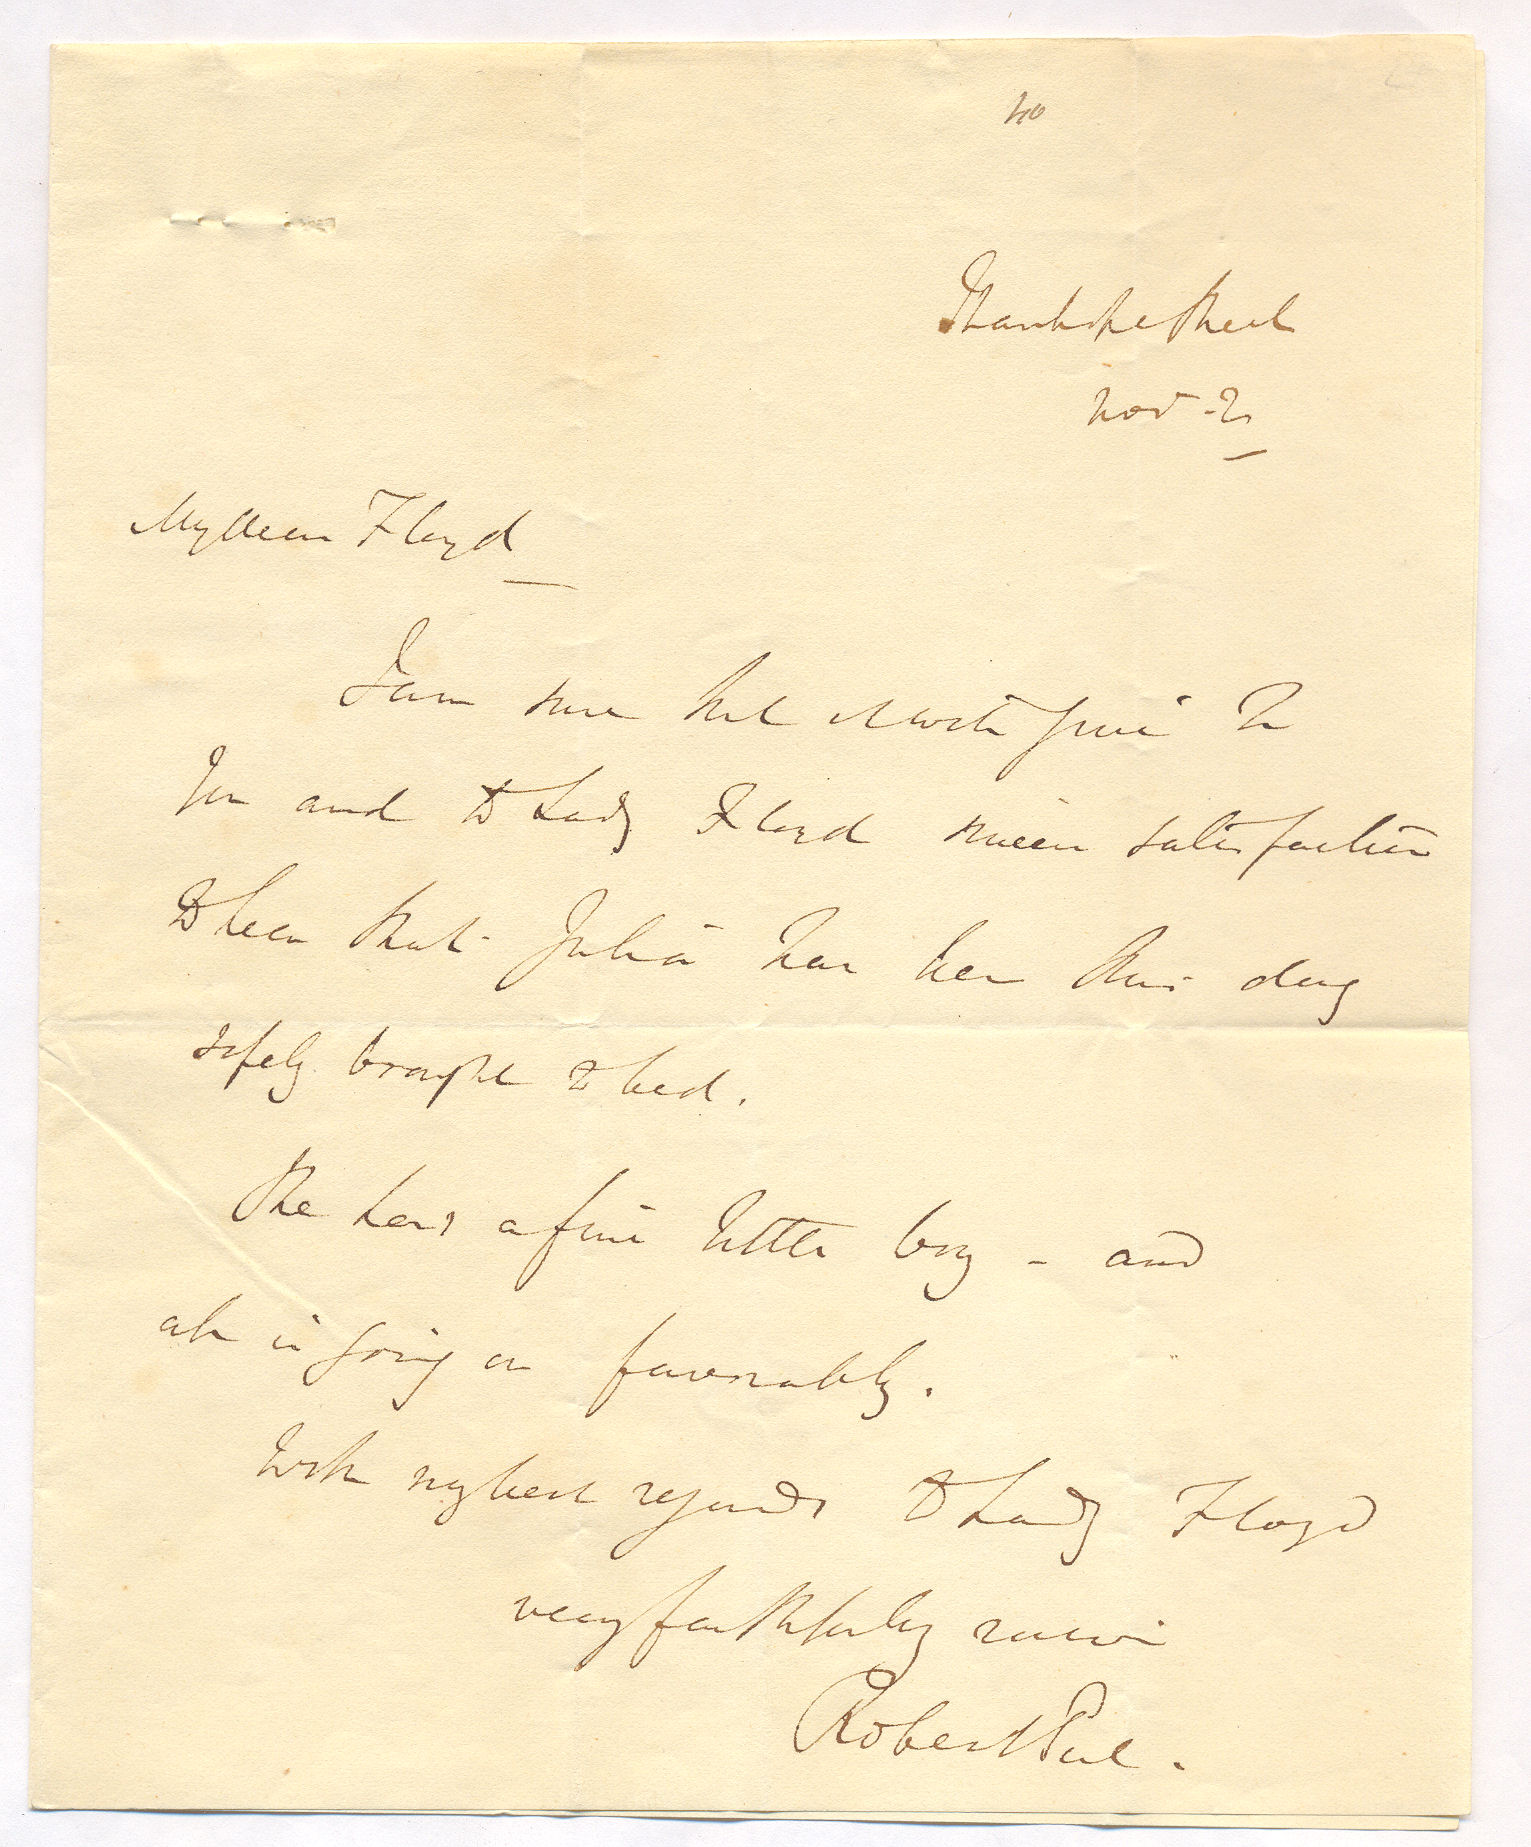 40
Stanhope Street
Nov 2
My dear Floyd
I am sure that it will give to
you and to Lady Floyd sincere satisfaction
to hear that Julia has been this day
safely brought to bed.
She has a fine little boy - and
all is going on favorably.
With my best regards to Lady Floyd
very faithfully yours
Robert Peel.